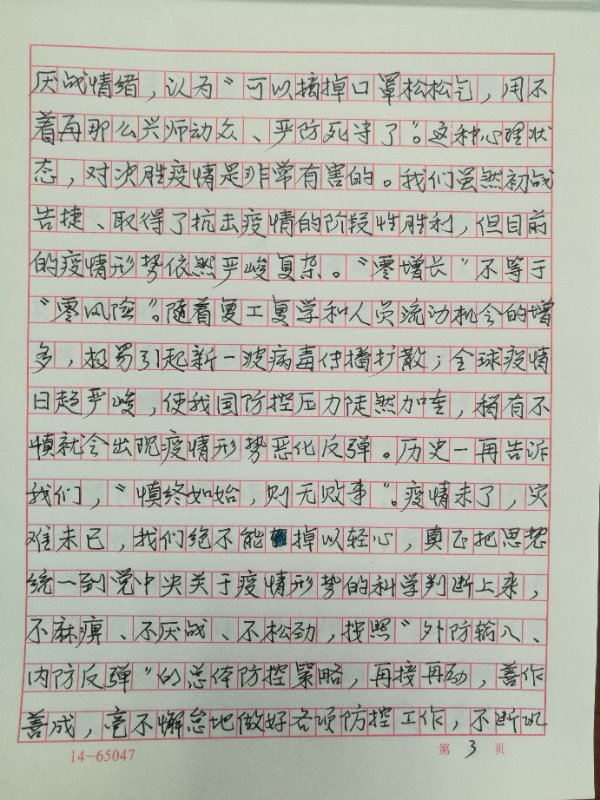 厌战情绪，认为“可以摘掉口罩松松气，用不
着再那么兴师动众、严防死守了”。这种心理状
态，对决胜疫情是非常有害的。我们虽然初战
告捷、取得了抗击疫情的阶段性胜利，但目前
的疫情形势依然严峻复杂。“零增长”不等于
“零风险”。随着复工复学和人员流动机会的增
多，极易引起新一波病毒传播扩散；全球疫情
日趋严峻，使我国防控压力陡然加重，稍有不
慎就会出现疫情形势恶化反弹。历史一再告诉
我们，“慎终如始，则无败事”。疫情未了，灾
难未已，我们绝不能掉以轻心，真正把思想
统一到党中央关于疫情形势的科学判断上来，
不麻痹、不厌战、不松劲，按照“外防输入、
内防反弹”的总体防控策略，再接再励，善作
善成，毫不懈怠地做好各项防控工作，不断巩
14-65047
第 3 页